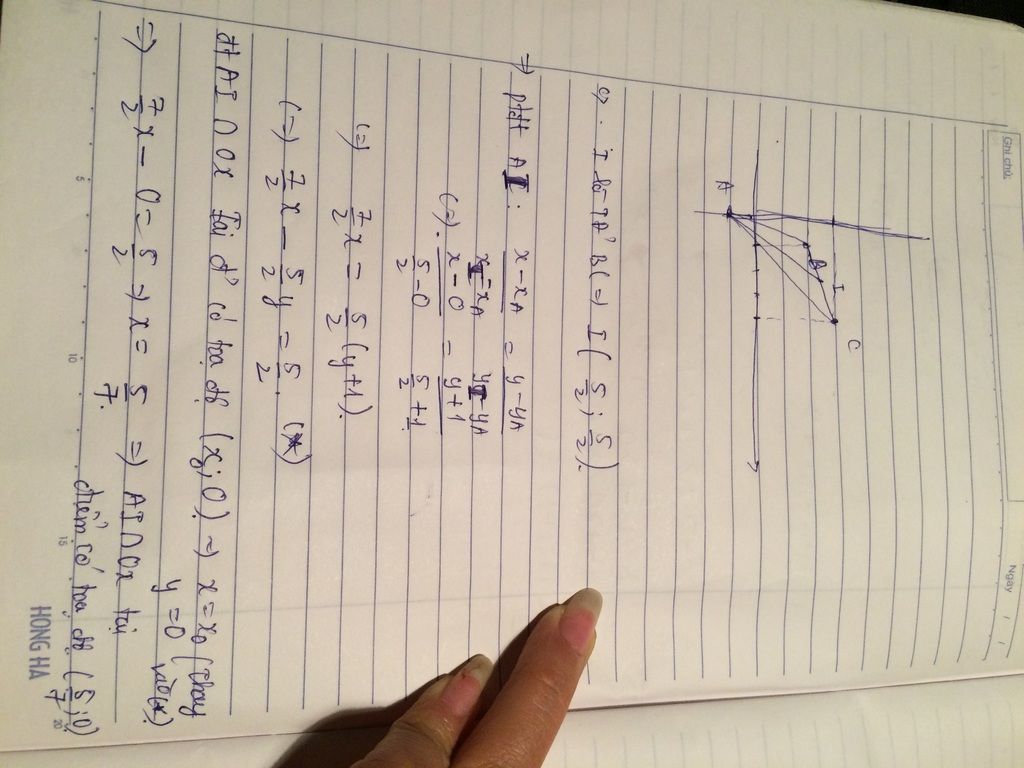 Ghi chú
Ngày / /
A
B
I
C
c,. I là TĐ BC => I ( 5/2 ; 5/2 ).
=> ptđt AI: (x - xA)/(xI - xA) = (y - yA)/(yI - yA)
(=). (x - 0)/(5/2 - 0) = (y + 1)/(5/2 + 1)
(=) 7/2 x = 5/2 (y+1).
(=) 7/2 x - 5/2 y = 5/2. (*)
đt AI ∩ Ox tại đ' có toạ độ (x; 0) => x = x0 (thay
y = 0 vào(*)
=) 7/2 x - 0 = 5/2 => x = 5/7. =) AI ∩ Ox tại
điểm có toạ độ (5/7; 0)
5 10 15 20
HONG HA